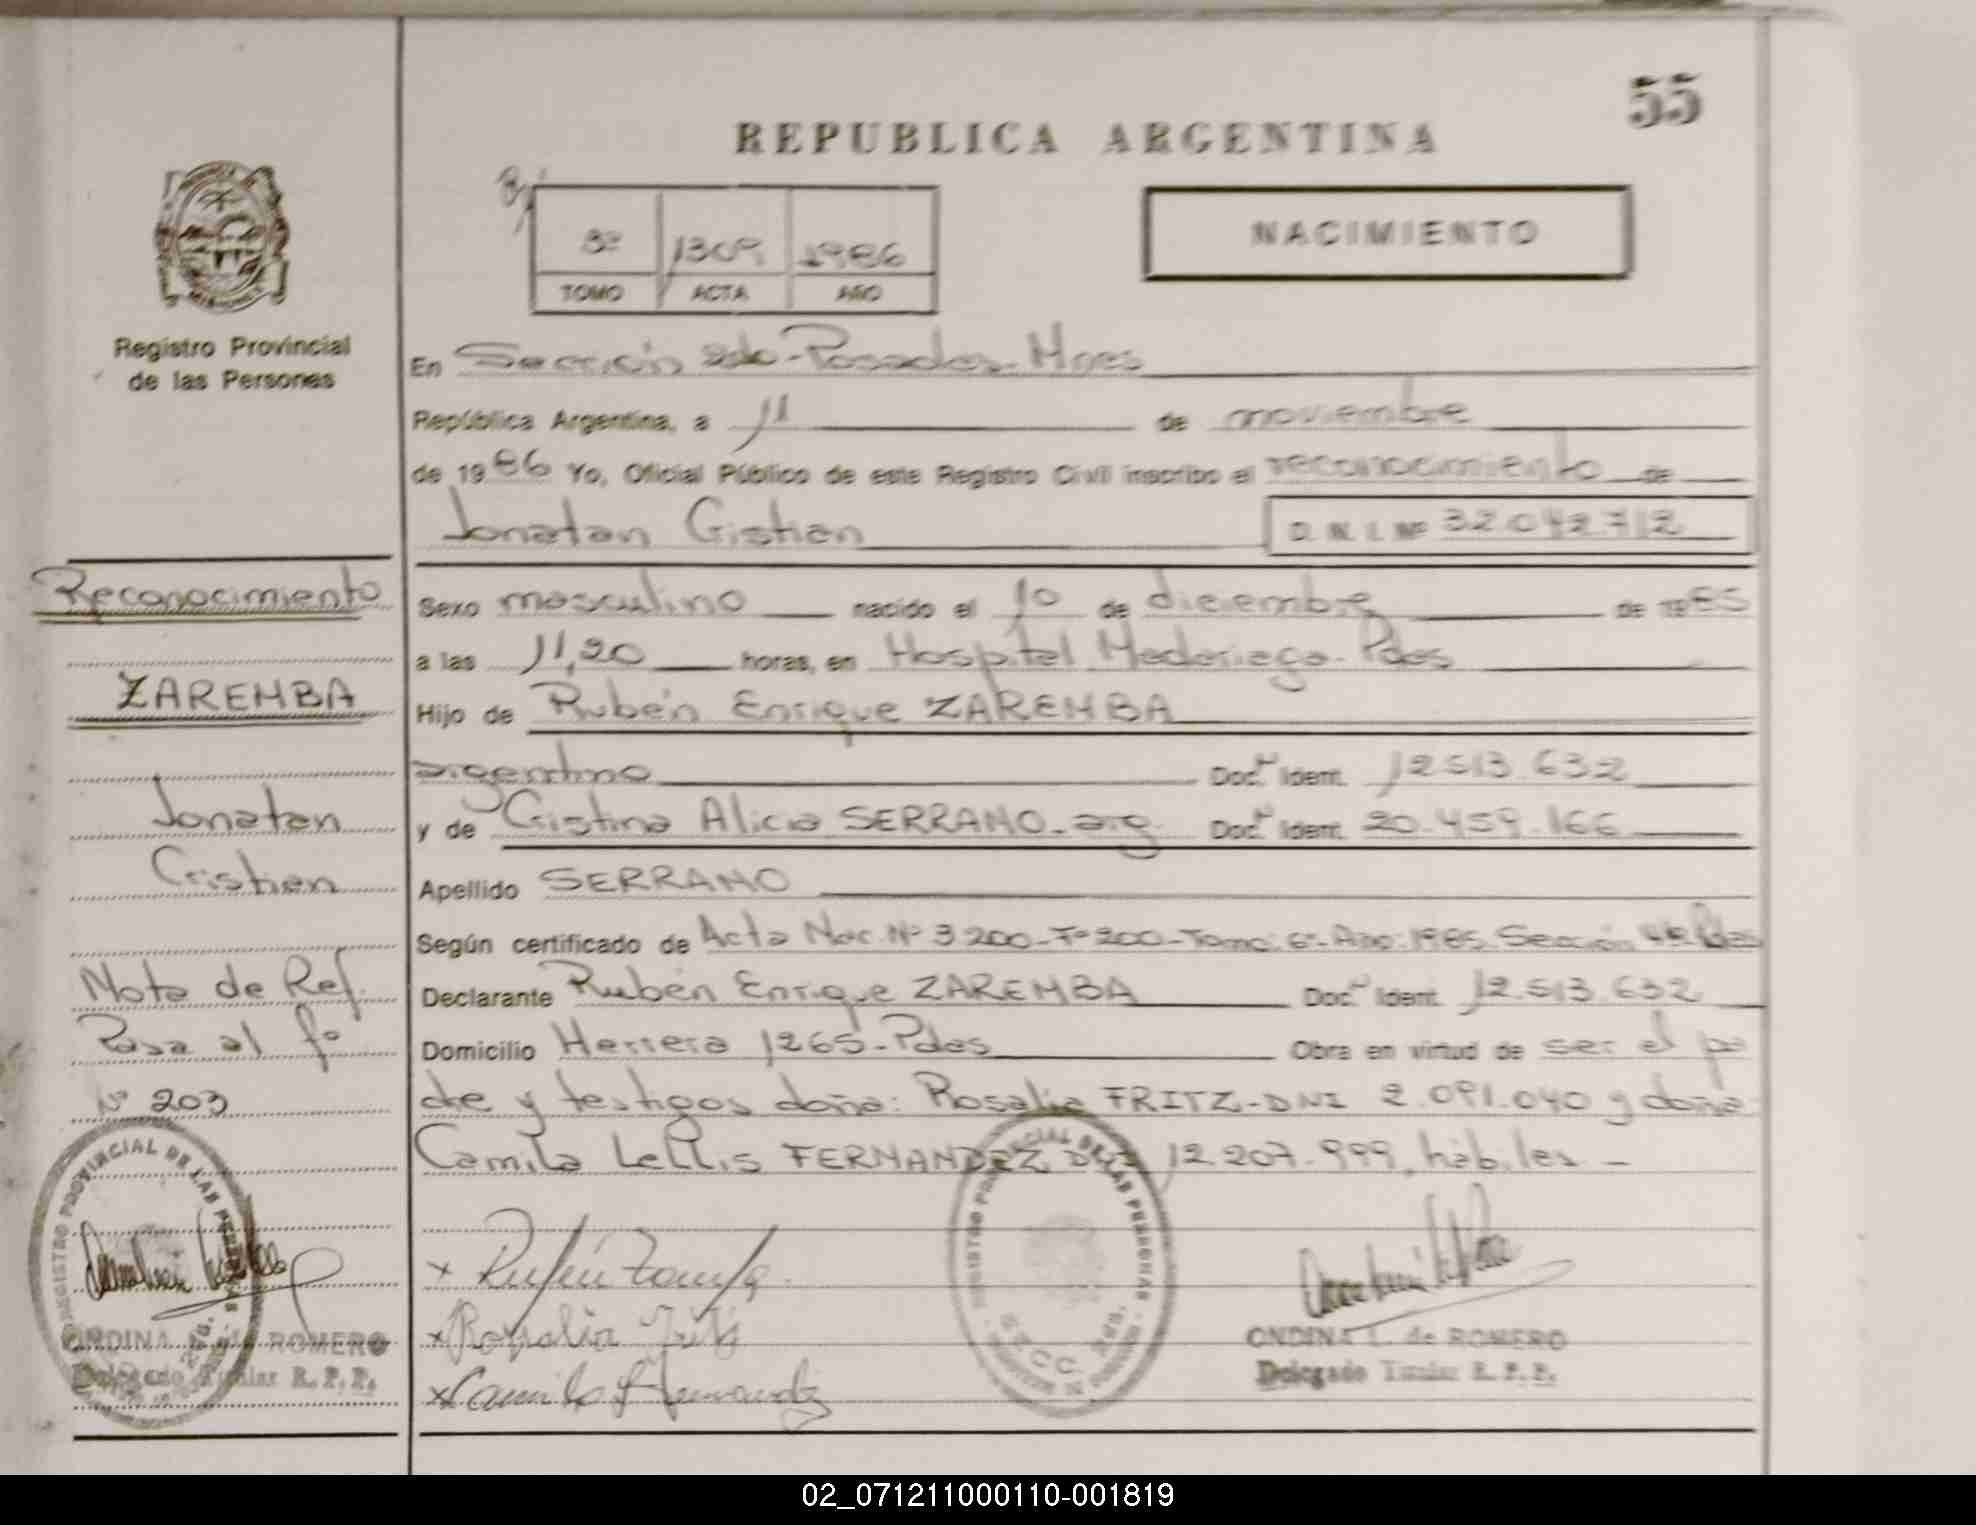 55
REPUBLICA ARGENTINA
3º 1309 1986
TOMO ACTA AÑO
NACIMIENTO
Registro Provincial
de las Personas
En Sección 2da-Posadas-Mnes
República Argentina, a 11 de noviembre
de 1986 Yo, Oficial Público de este Registro Civil inscribo el reconocimiento de
Jonatan Cristian D.N.I. Nº 32.042.712
Sexo masculino nacido el 10 de diciembre de 1985
a las 11,20 horas, en Hospital Madariaga-Pdas
Hijo de Rubén Enrique ZAREMBA
argentino Doc. Ident. 12.513.632
y de Cristina Alicia SERRANO-arg. Doc. Ident. 20.459.166
Apellido SERRANO
Según certificado de Acta Nac. Nº 3200-Fº200-Tomo: 6º-Año: 1985 Sección 4ta Pdas
Declarante Rubén Enrique ZAREMBA Doc. Ident. 12.513.632
Domicilio Herrera 1265-Pdas Obra en virtud de ser el pa
dre y testigos doña: Rosalia FRITZ-DNI 2.091.040 y doña
Camila Lellis FERNANDEZ DNI 12.207.999, hábiles -
Reconocimiento
ZAREMBA
Jonatan
Cristian
Nota de Ref.
Pasa al fº
Nº 203
REGISTRO PROVINCIAL DE LAS PERSONAS
ONDINA L. de ROMERO
Delegado Titular R.P.P.
x Rubén Zaremba
x Rosalia Fritz
x Camila L Fernandez
REGISTRO PROVINCIAL DE LAS PERSONAS
SECC. 2da.
ONDINA L. de ROMERO
Delegado Titular R.P.P.
02_071211000110-001819